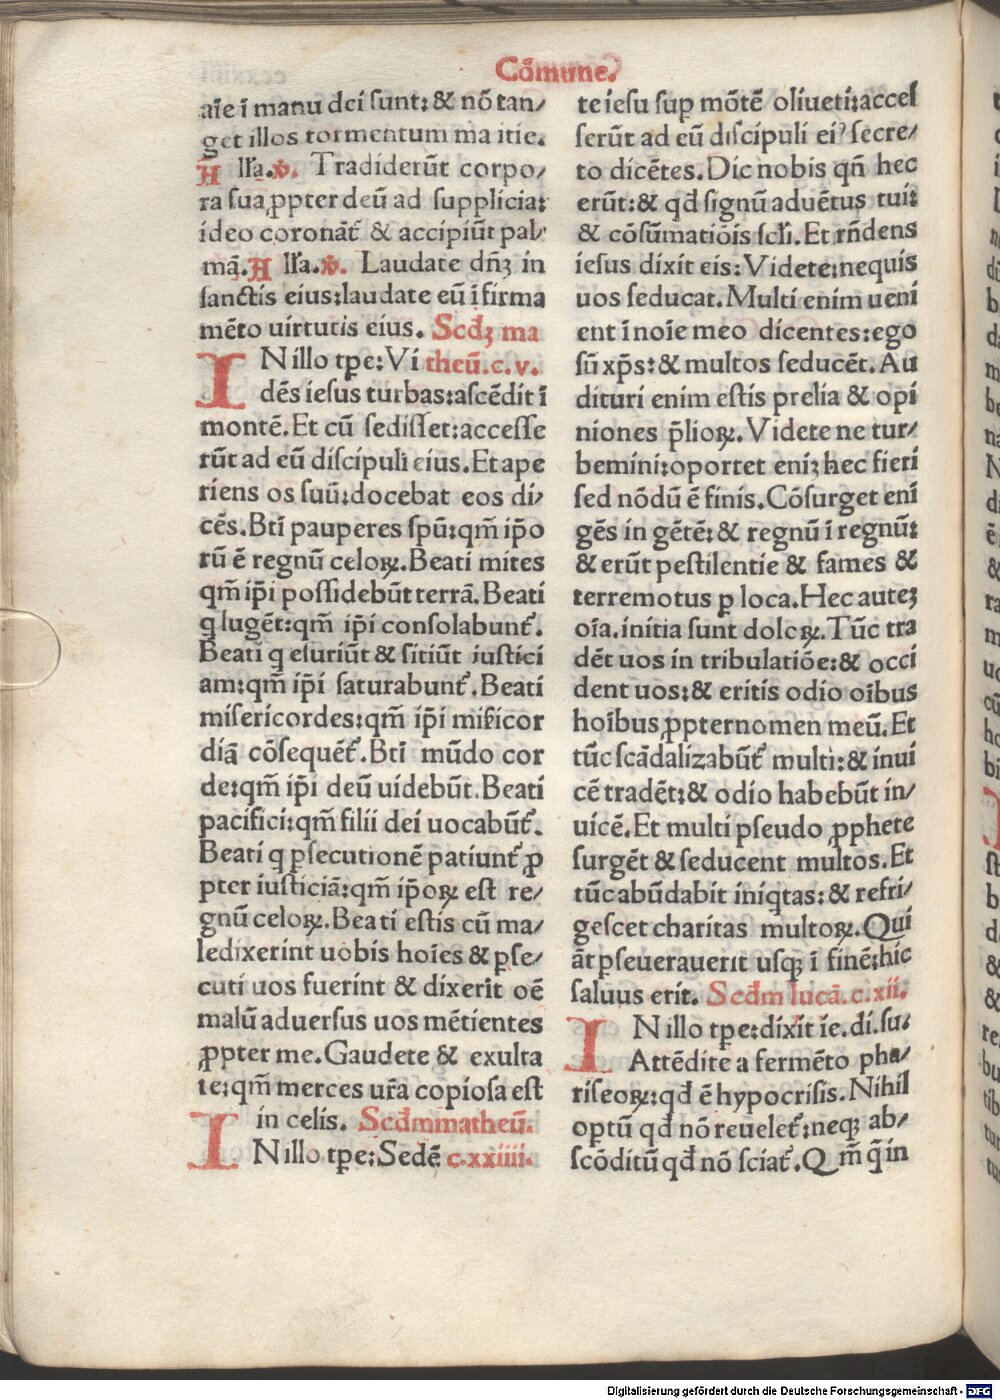 Cōmune.
aīe ī manu dei ſunt: & nō tan/
get illos tormentum ma itie.
A llīa. ꝟ. Tradiderūt corpo/
ra ſua ꝓpter deū ad ſupplicia:
ideo coronāt᷑ & accipiūt pal/
mā. A llīa. ꝟ. Laudate dn̄ꝫ in
ſanctis eius: laudate eū ī firma
mēto uirtutis eius. Scdꝫ ma
INillo tꝑe: Vi theū.c.v.
dēs ieſus turbas: aſcēdit ī
montē. Et cū ſediſſet: acceſſe
rūt ad eū diſcipuli eius. Et ape
riens os ſuū: docebat eos di/
cēs. Btī pauperes ſpū: qm̄ ip̄o
rū ē regnū celoꝝ. Beati mites
qm̄ ip̄i poſſidebūt terrā. Beati
q lugēt: qm̄ ip̄i conſolabunt᷑.
Beati q eſuriūt & ſitiūt iuſtici
am: qm̄ ip̄i ſaturabunt᷑. Beati
miſericordes: qm̄ ip̄i miſicor
diā cōſequēt᷑. Btī mūdo cor
de: qm̄ ip̄i deū uidebūt. Beati
pacifici: qm̄ filii dei uocabūt᷑.
Beati q ꝑſecutionē patiunt᷑ ꝓ
pter iuſticiā: qm̄ ip̄oꝝ eſt re/
gnū celoꝝ. Beati eſtis cū ma/
ledixerint uobis hoīes & ꝑſe/
cuti uos fuerint & dixerīt oē
malū aduerſus uos mētientes
ꝓpter me. Gaudete & exulta
te: qm̄ merces ur̄a copioſa eſt
in celis. Scdm matheū.
INillo tꝑe: Sedē c.xxiiii.
te ieſu ſup mōtē oliueti: acceſ
ſerūt ad eū diſcipuli ei᷒ ſecre/
to dicētes. Dic nobis qn̄ hec
erūt: & qd ſignū aduētus tui:
& cōſūmatiōis ſcl̄i. Et rn̄dens
ieſus dixit eis: Videte: nequis
uos ſeducat. Multi enim ueni
ent ī noīe meo dicentes: ego
ſū xp̄s: & multos ſeducēt. Au
dituri enim eſtis prelia & opi
niones p̄lioꝝ. Videte ne tur/
bemini: oportet eniꝫ hec fieri
ſed nōdū ē finis. Cōſurget eni
gēs in gētē: & regnū ī regnū:
& erūt peſtilentie & fames &
terremotus ꝑ loca. Hec auteꝫ
oīa. initia ſunt doloꝝ. Tūc tra
dēt uos in tribulatiōe: & occi
dent uos: & eritis odio oībus
hoībus ꝓpter nomen meū. Et
tūc ſcādalizabūt᷑ multi: & inui
cē tradēt: & odio habebūt in/
uicē. Et multi pſeudo ꝓphete
ſurgēt & ſeducent multos. Et
tūc abūdabit iniqtas: & refri/
geſcet charitas multoꝝ. Qui
āt ꝑſeuerauerit uſqꝫ ī finē: hic
ſaluus erit. Scdm lucā.c.xii.
INillo tꝑe: dixit ie. di. ſu:
Attēdite a fermēto pha/
riſeoꝝ: qd ē hypocriſis. Nihil
optū qd nō reuelet᷑: neqꝫ ab/
ſcōditū qd nō ſciat᷑. Qm̄ q̄ in
Digitalisierung gefördert durch die Deutsche Forschungsgemeinschaft - DFG